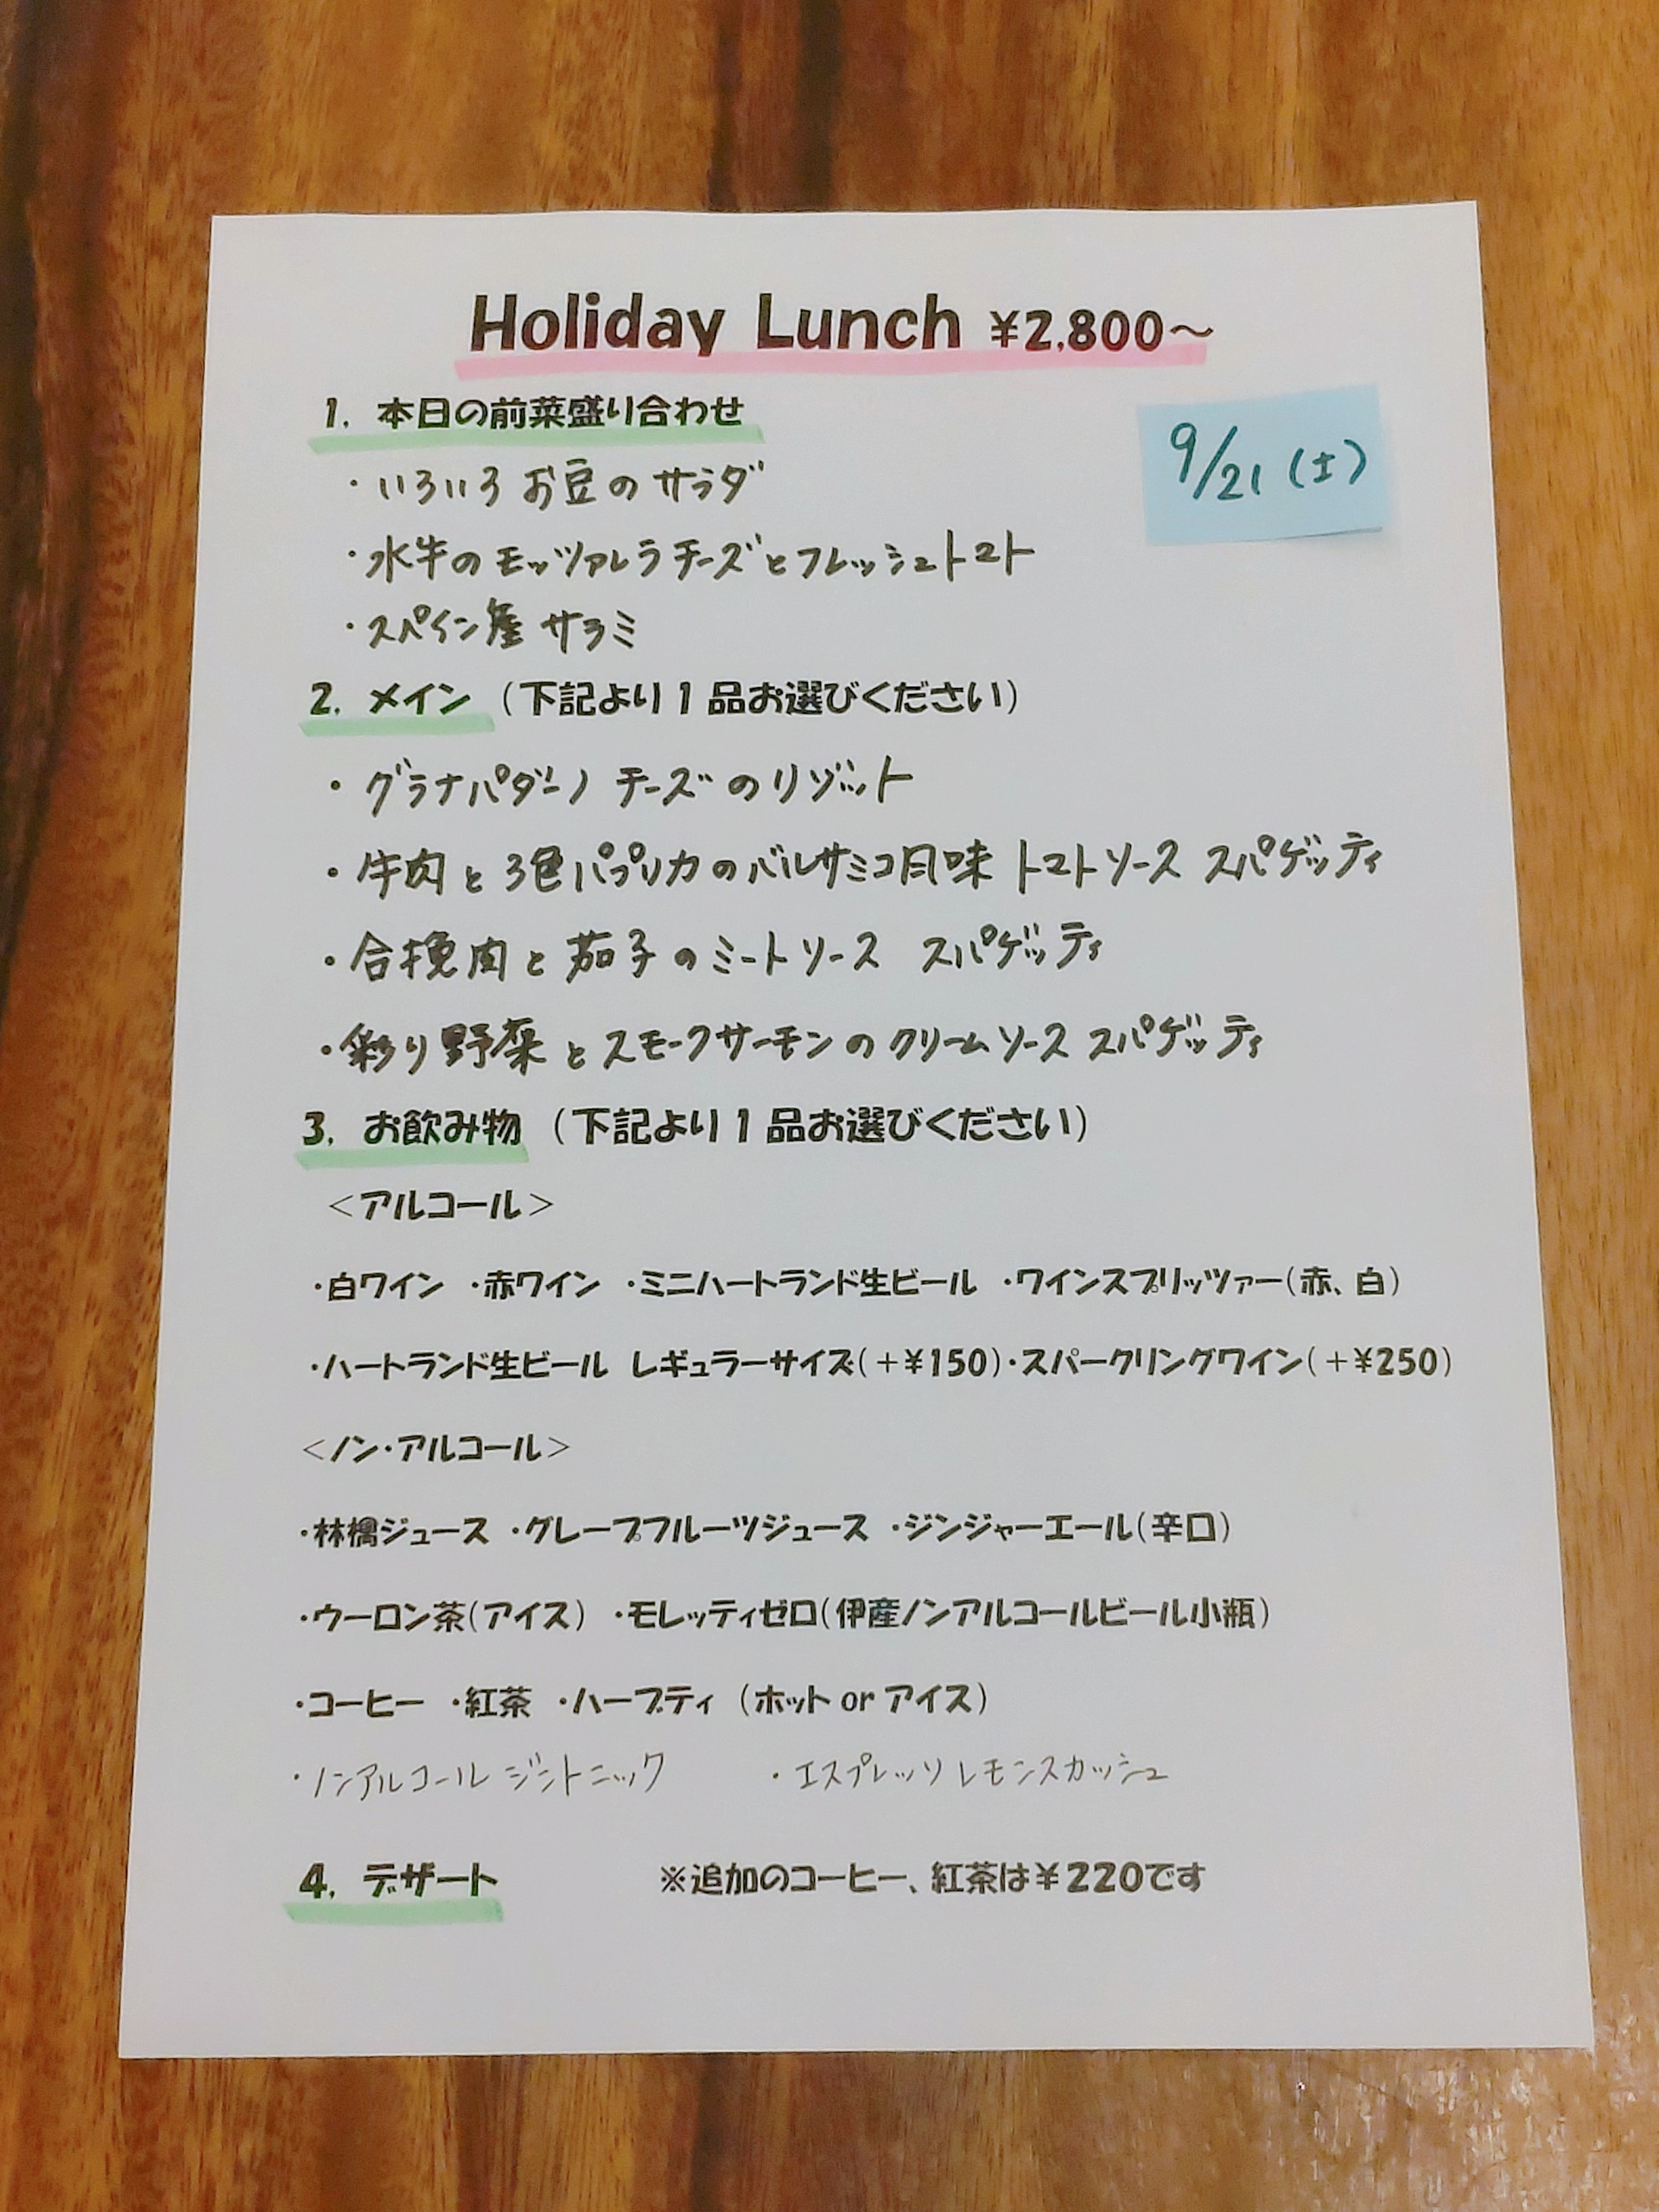 Holiday Lunch ¥2,800～
1. 本日の前菜盛り合わせ
9/21 (土)
・いろいろお豆のサラダ
・水牛のモッツァレラチーズとフレッシュトマト
・スペイン産 サラミ
2. メイン （下記より1品お選びください）
・グラナパダーノ チーズのリゾット
・牛肉と3色パプリカのバルサミコ風味 トマトソース スパゲッティ
・合挽肉と茄子のミートソース スパゲッティ
・彩り野菜とスモークサーモンのクリームソース スパゲッティ
3. お飲み物 （下記より1品お選びください）
＜アルコール＞
・白ワイン ・赤ワイン ・ミニハートランド生ビール ・ワインスプリッツァー（赤、白）
・ハートランド生ビール レギュラーサイズ（＋¥150）・スパークリングワイン（＋¥250）
＜ノン・アルコール＞
・林檎ジュース ・グレープフルーツジュース ・ジンジャーエール（辛口）
・ウーロン茶（アイス） ・モレッティゼロ（伊産ノンアルコールビール小瓶）
・コーヒー ・紅茶 ・ハーブティ （ホット or アイス）
・ノンアルコール ジントニック ・エスプレッソ レモンスカッシュ
4. デザート ※追加のコーヒー、紅茶は¥220です